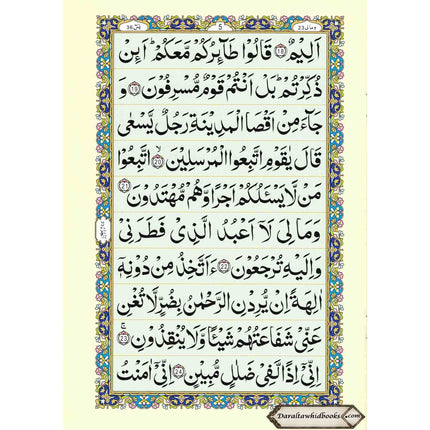 يٰسٓ 36
5
ومالى 23
اَلِيْمٌ ۝۱۸ قَالُوْا طَآئِرُكُمْ مَّعَكُمْ ؕ اَئِنْ
ذُكِّرْتُمْ ؕ بَلْ اَنْتُمْ قَوْمٌ مُّسْرِفُوْنَ ۝۱۹ وَ
جَآءَ مِنْ اَقْصَا الْمَدِيْنَةِ رَجُلٌ يَّسْعٰى
قَالَ يٰقَوْمِ اتَّبِعُوا الْمُرْسَلِيْنَ ۝۲۰ اتَّبِعُوْا
مَنْ لَّا يَسْـَٔلُكُمْ اَجْرًا وَّهُمْ مُّهْتَدُوْنَ ۝۲۱
وَمَا لِىَ لَاۤ اَعْبُدُ الَّذِىْ فَطَرَنِىْ
وَاِلَيْهِ تُرْجَعُوْنَ ۝۲۲ ءَاَتَّخِذُ مِنْ دُوْنِهٖۤ
اٰلِهَةً اِنْ يُّرِدْنِ الرَّحْمٰنُ بِضُرٍّ لَّا تُغْنِ
عَنِّىْ شَفَاعَتُهُمْ شَيْـًٔا وَّلَا يُنْقِذُوْنِ ۝۲۳
اِنِّىْۤ اِذًا لَّفِىْ ضَلٰلٍ مُّبِيْنٍ ۝۲۴ اِنِّىْۤ اٰمَنْتُ
Daraltawhidbooks.com